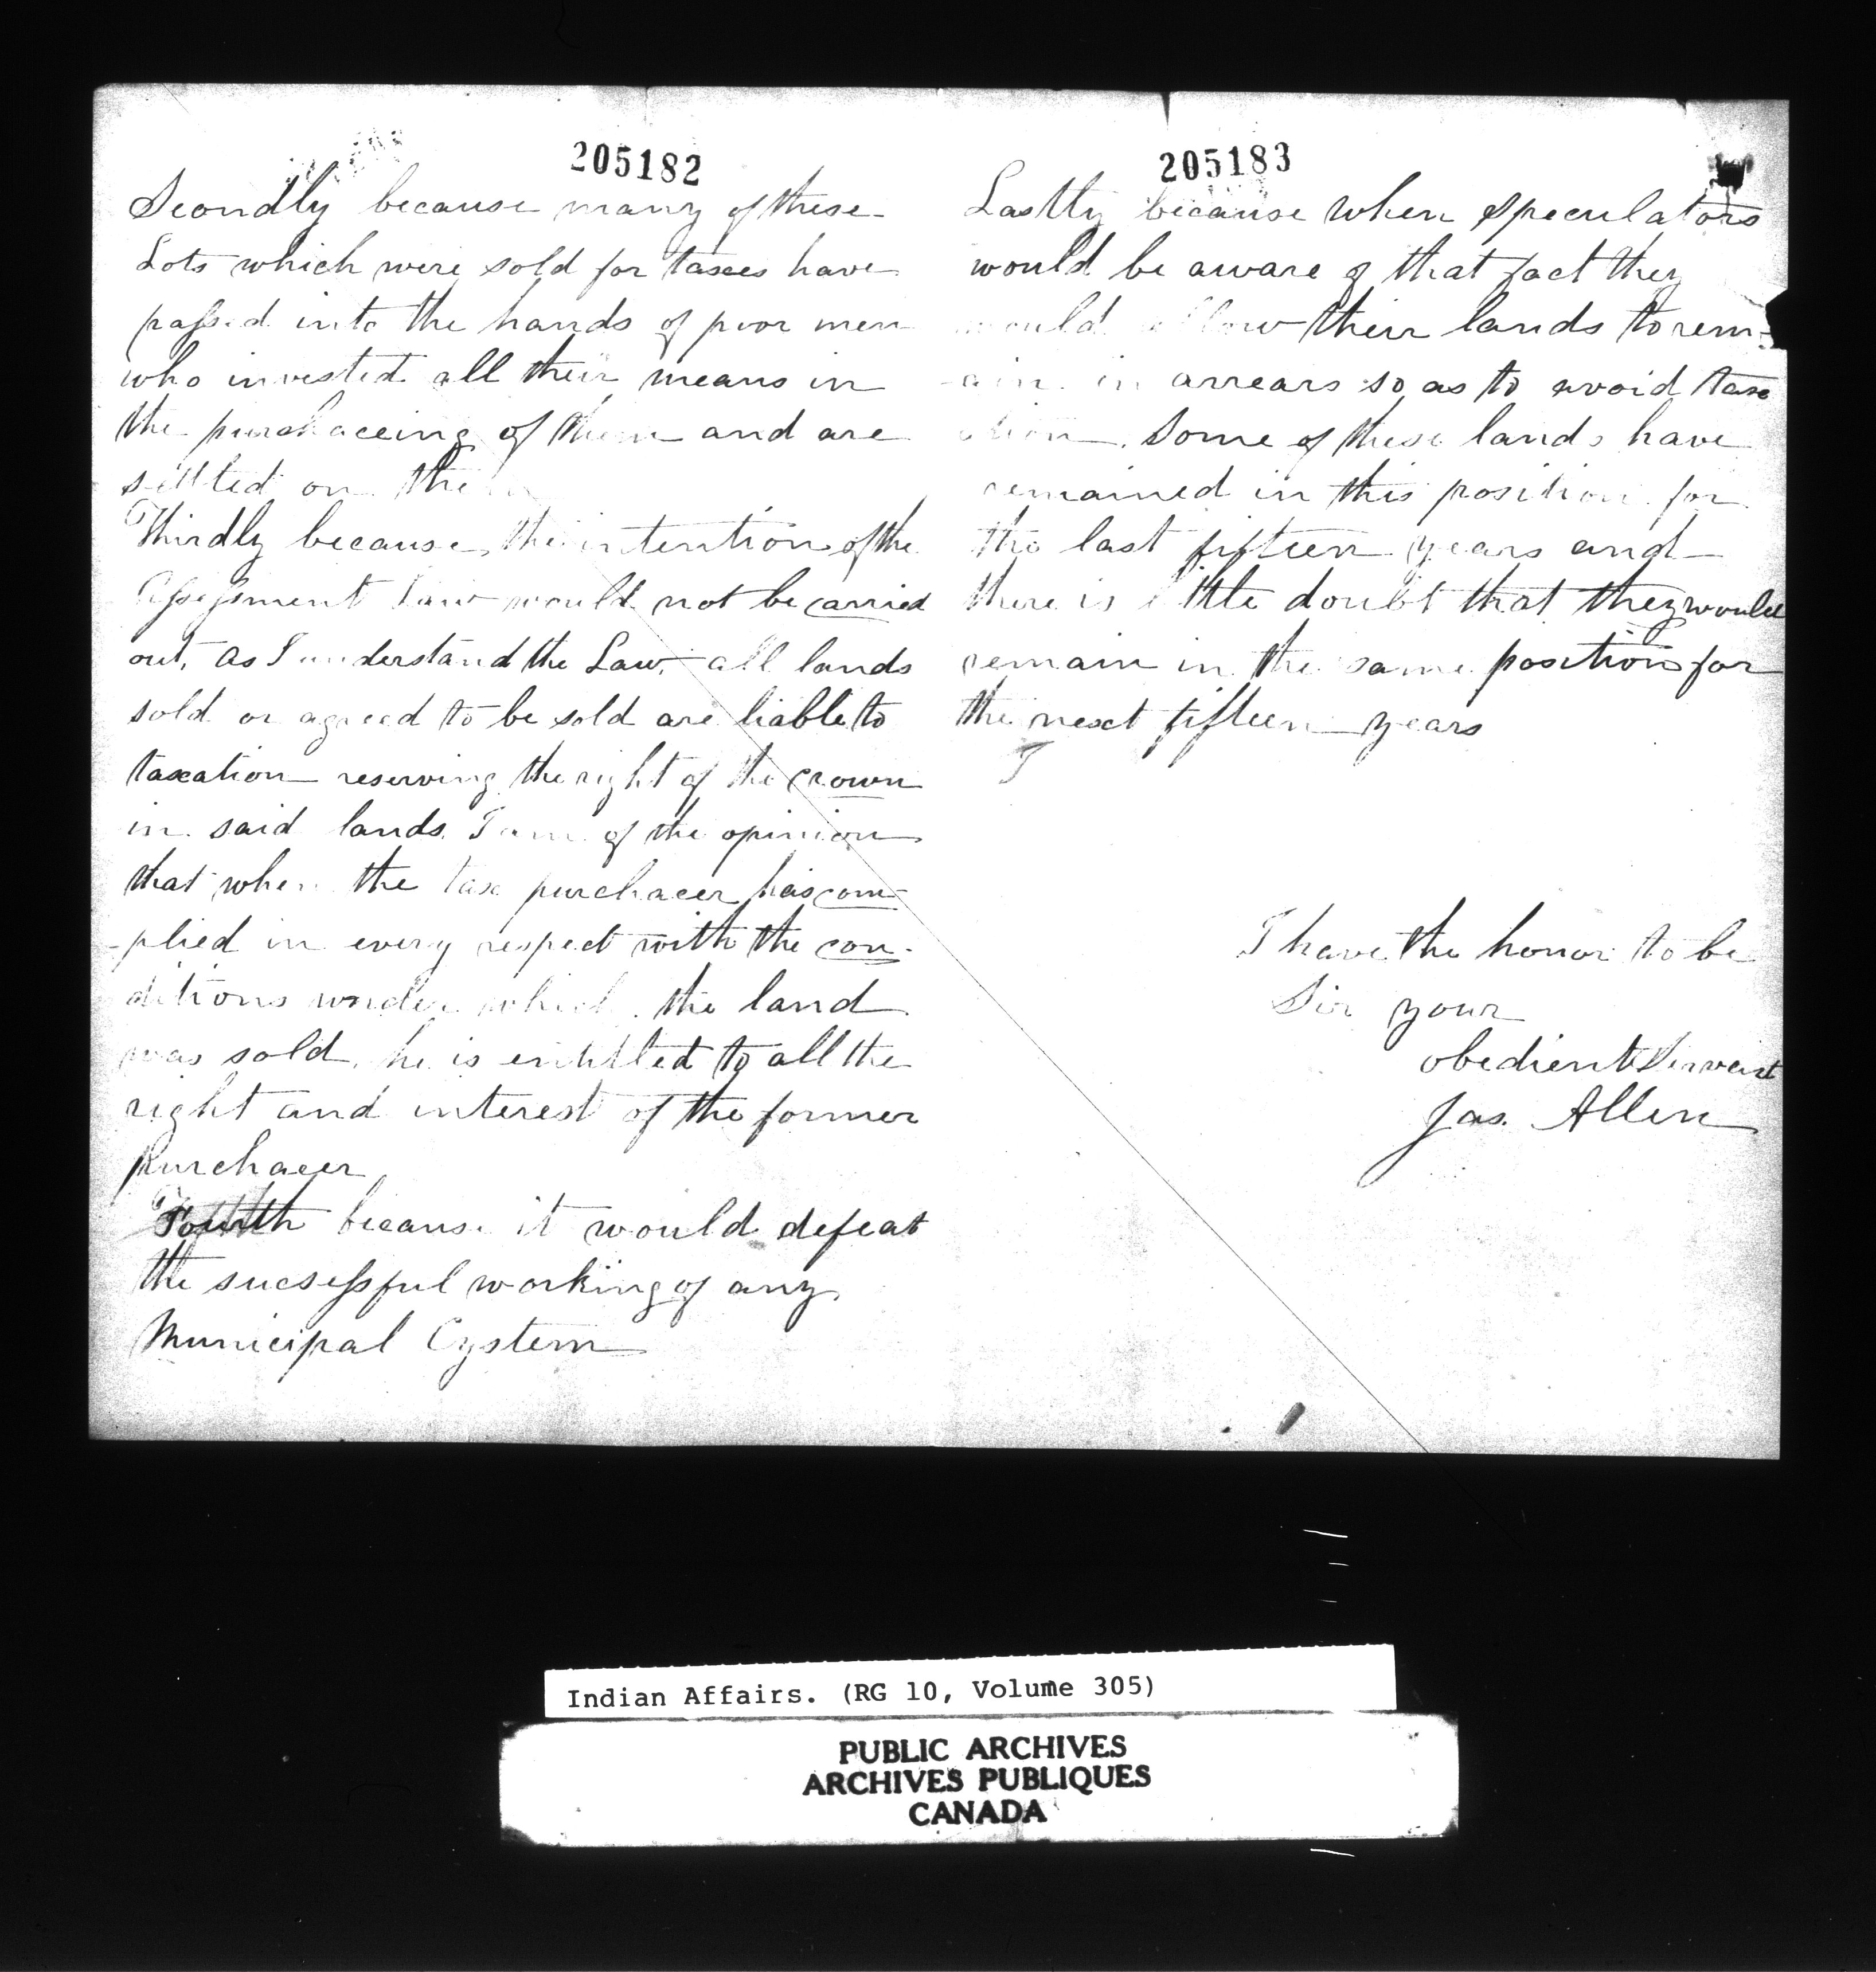 205182
Secondly because many of these
Lots which were sold for taxes have
passed into the hands of poor men
who invested all their means in
the purchaceing of them and are
settled on them
Thirdly because the intention of the
Assessment Law would not be carried
out, as I understand the Law, all lands
sold or agreed to be sold are liable to
taxation reserving the right of the crown
in said lands. I am of the opinion
that when the tax purchacer has com-
-plied in every respect with the con-
ditions under which the land
was sold, he is entitled to all the
right and interest of the former
purchacer
Fourth because it would defeat
the sucsessful working of any
Municipal Cystem
205183
Lastly because when speculators
would be aware of that fact they
would allow their lands to rem-
-ain in arrears so as to avoid taxa
tion. Some of these lands have
remained in this position for
the last fifteen years and
there is little doubt that they would
remain in the same position for
the next fifteen years
I
I have the honor to be
Sir your
obedient Servant
Jas. Allen
Indian Affairs. (RG 10, Volume 305)
PUBLIC ARCHIVES
ARCHIVES PUBLIQUES
CANADA